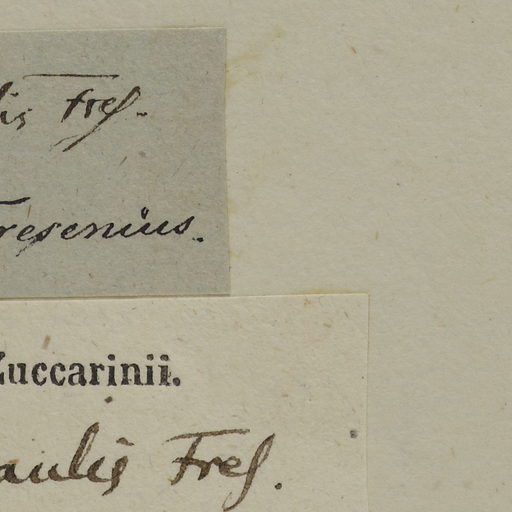 lis Fres.
Fresenius.
Zuccarinii.
aulis Fres.